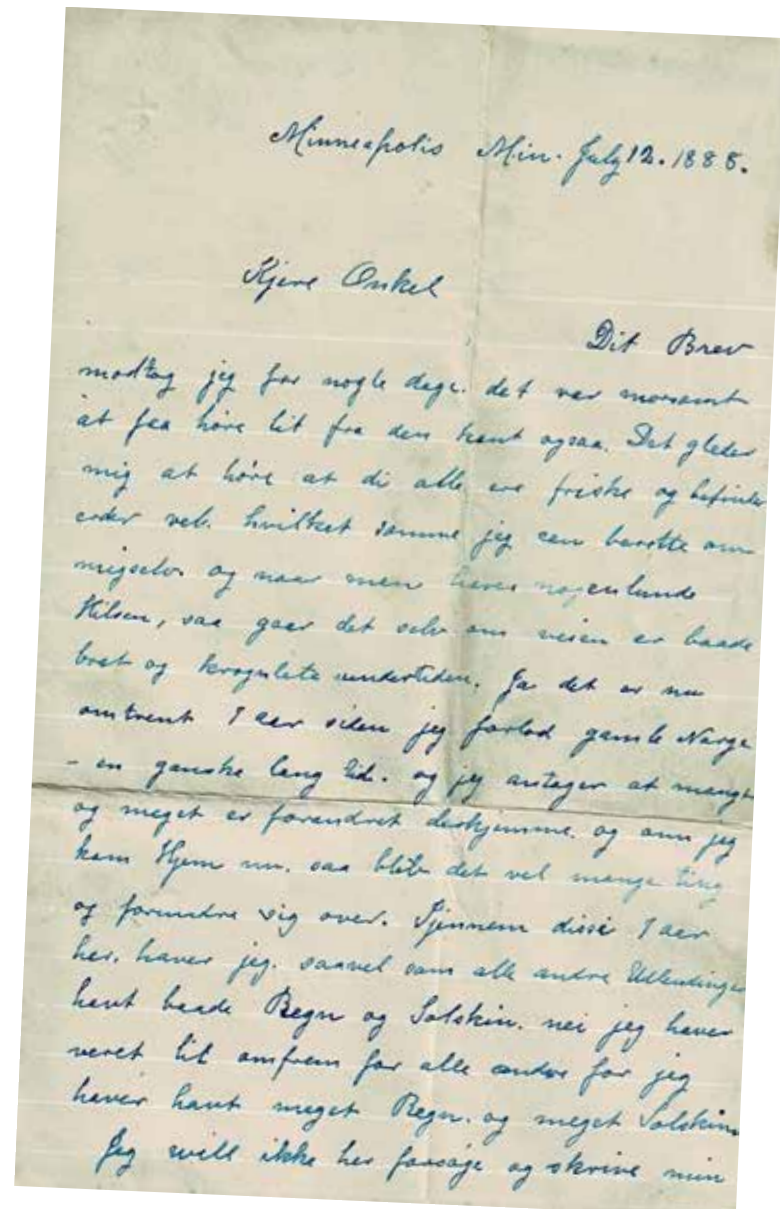 Minneapolis Min. July 12. 1888.
Kjere Onkel
Dit Brev
modtog jeg for nogle dage. det var morsomt
at faa høre lit fra den kant ogsaa. Det gleder
mig at høre at di alle ere friske og befinder
eder vel. hvilket samme jeg can berette om
migselv og naar men haver nogenlunde
Hilsen, saa gaar det selv om veien er baade
brat og krogulete undertiden. Ja det er nu
omtrent 7 aar siden jeg forlod gamle Norge
- en ganske lang Tid. og jeg antager at mangt
og meget er forandret derhjemme. og om jeg
kom Hjem nu. saa blib det vel mange ting
og forundre sig over. Gjennem disse 7 aar
her. haver jeg. saavel som alle andre Utlendinger
havt baade Regn og Solskin. nei jeg haver
veret lit omfrem for alle andre for jeg
haver havt meget Regn. og meget Solskin
Jeg will ikke her forsøge og skrive min